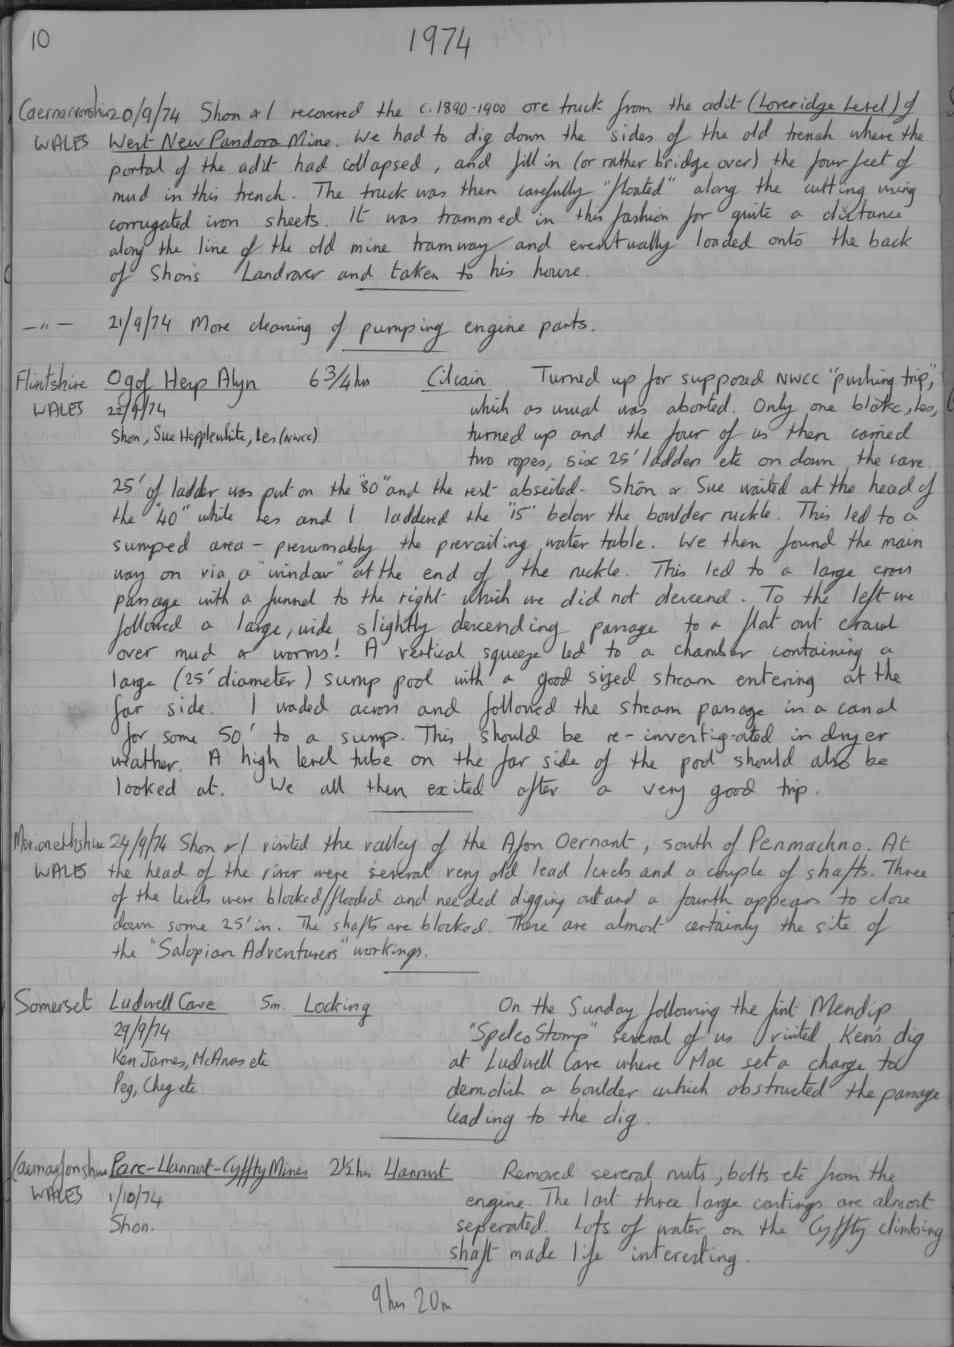 10
1974
Caernarvonshire 20/9/74 Shon & I recovered the c.1890-1900 ore truck from the adit (Loveridge Level) of
WALES West New Pandora Mine. We had to dig down the sides of the old trench where the
portal of the adit had collapsed, and fill in (or rather bridge over) the four feet of
mud in this trench. The truck was then carefully "floated" along the cutting using
corrugated iron sheets. It was trammed in this fashion for quite a distance
along the line of the old mine tramway and eventually loaded onto the back
of Shon's Landrover and taken to his house.
—"— 21/9/74 More cleaning of pumping engine parts.
Flintshire Ogof Hesp Alyn 6 3/4 hrs Cilcain Turned up for supposed NWCC "pushing trip,"
WALES 22/9/74 which as usual was aborted. Only one bloke, Les,
Shon, Sue Hepplewhite, Les (NWCC) turned up and the four of us then carried
two ropes, six 25' ladders etc on down the cave.
25' of ladder was put on the "80" and the rest abseiled. Shon & Sue waited at the head of
the "40" while Les and I laddered the "15" below the boulder ruckle. This led to a
sumped area - presumably the prevailing water table. We then found the main
way on via a "window" at the end of the ruckle. This led to a large cross
passage with a funnel to the right which we did not descend. To the left we
followed a large, wide slightly descending passage to a flat out crawl
over mud & worms! A vertical squeeze led to a chamber containing a
large (25' diameter) sump pool with a good sized stream entering at the
far side. I waded across and followed the stream passage in a canal
for some 50' to a sump. This should be re-investig-ated in dryer
weather. A high level tube on the far side of the pool should also be
looked at. We all then exited after a very good trip.
Merionethshire 24/9/74 Shon & I visited the valley of the Afon Oernant, south of Penmachno. At
WALES the head of the river were several very old lead levels and a couple of shafts. Three
of the levels were blocked/flooded and needed digging out and a fourth appears to close
down some 25' in. The shafts are blocked. These are almost certainly the site of
the "Salopian Adventurers" workings.
Somerset Ludwell Cave 5m. Locking On the Sunday following the first Mendip
29/9/74 "Speleo Stomp" several of us visited Ken's dig
Ken James, McAnus etc at Ludwell Cave where Mac set a charge to
Peg, Cheg etc demolish a boulder which obstructed the passage
leading to the dig.
Caernarfonshire Parc-Llanrwst-Cyffty Mines 2½hrs Llanrwst Removed several nuts, bolts etc from the
WALES 1/10/74 engine. The last three large castings are almost
Shon. seperated. Lots of water on the Cyffty climbing
shaft made life interesting.
9 hrs 20m